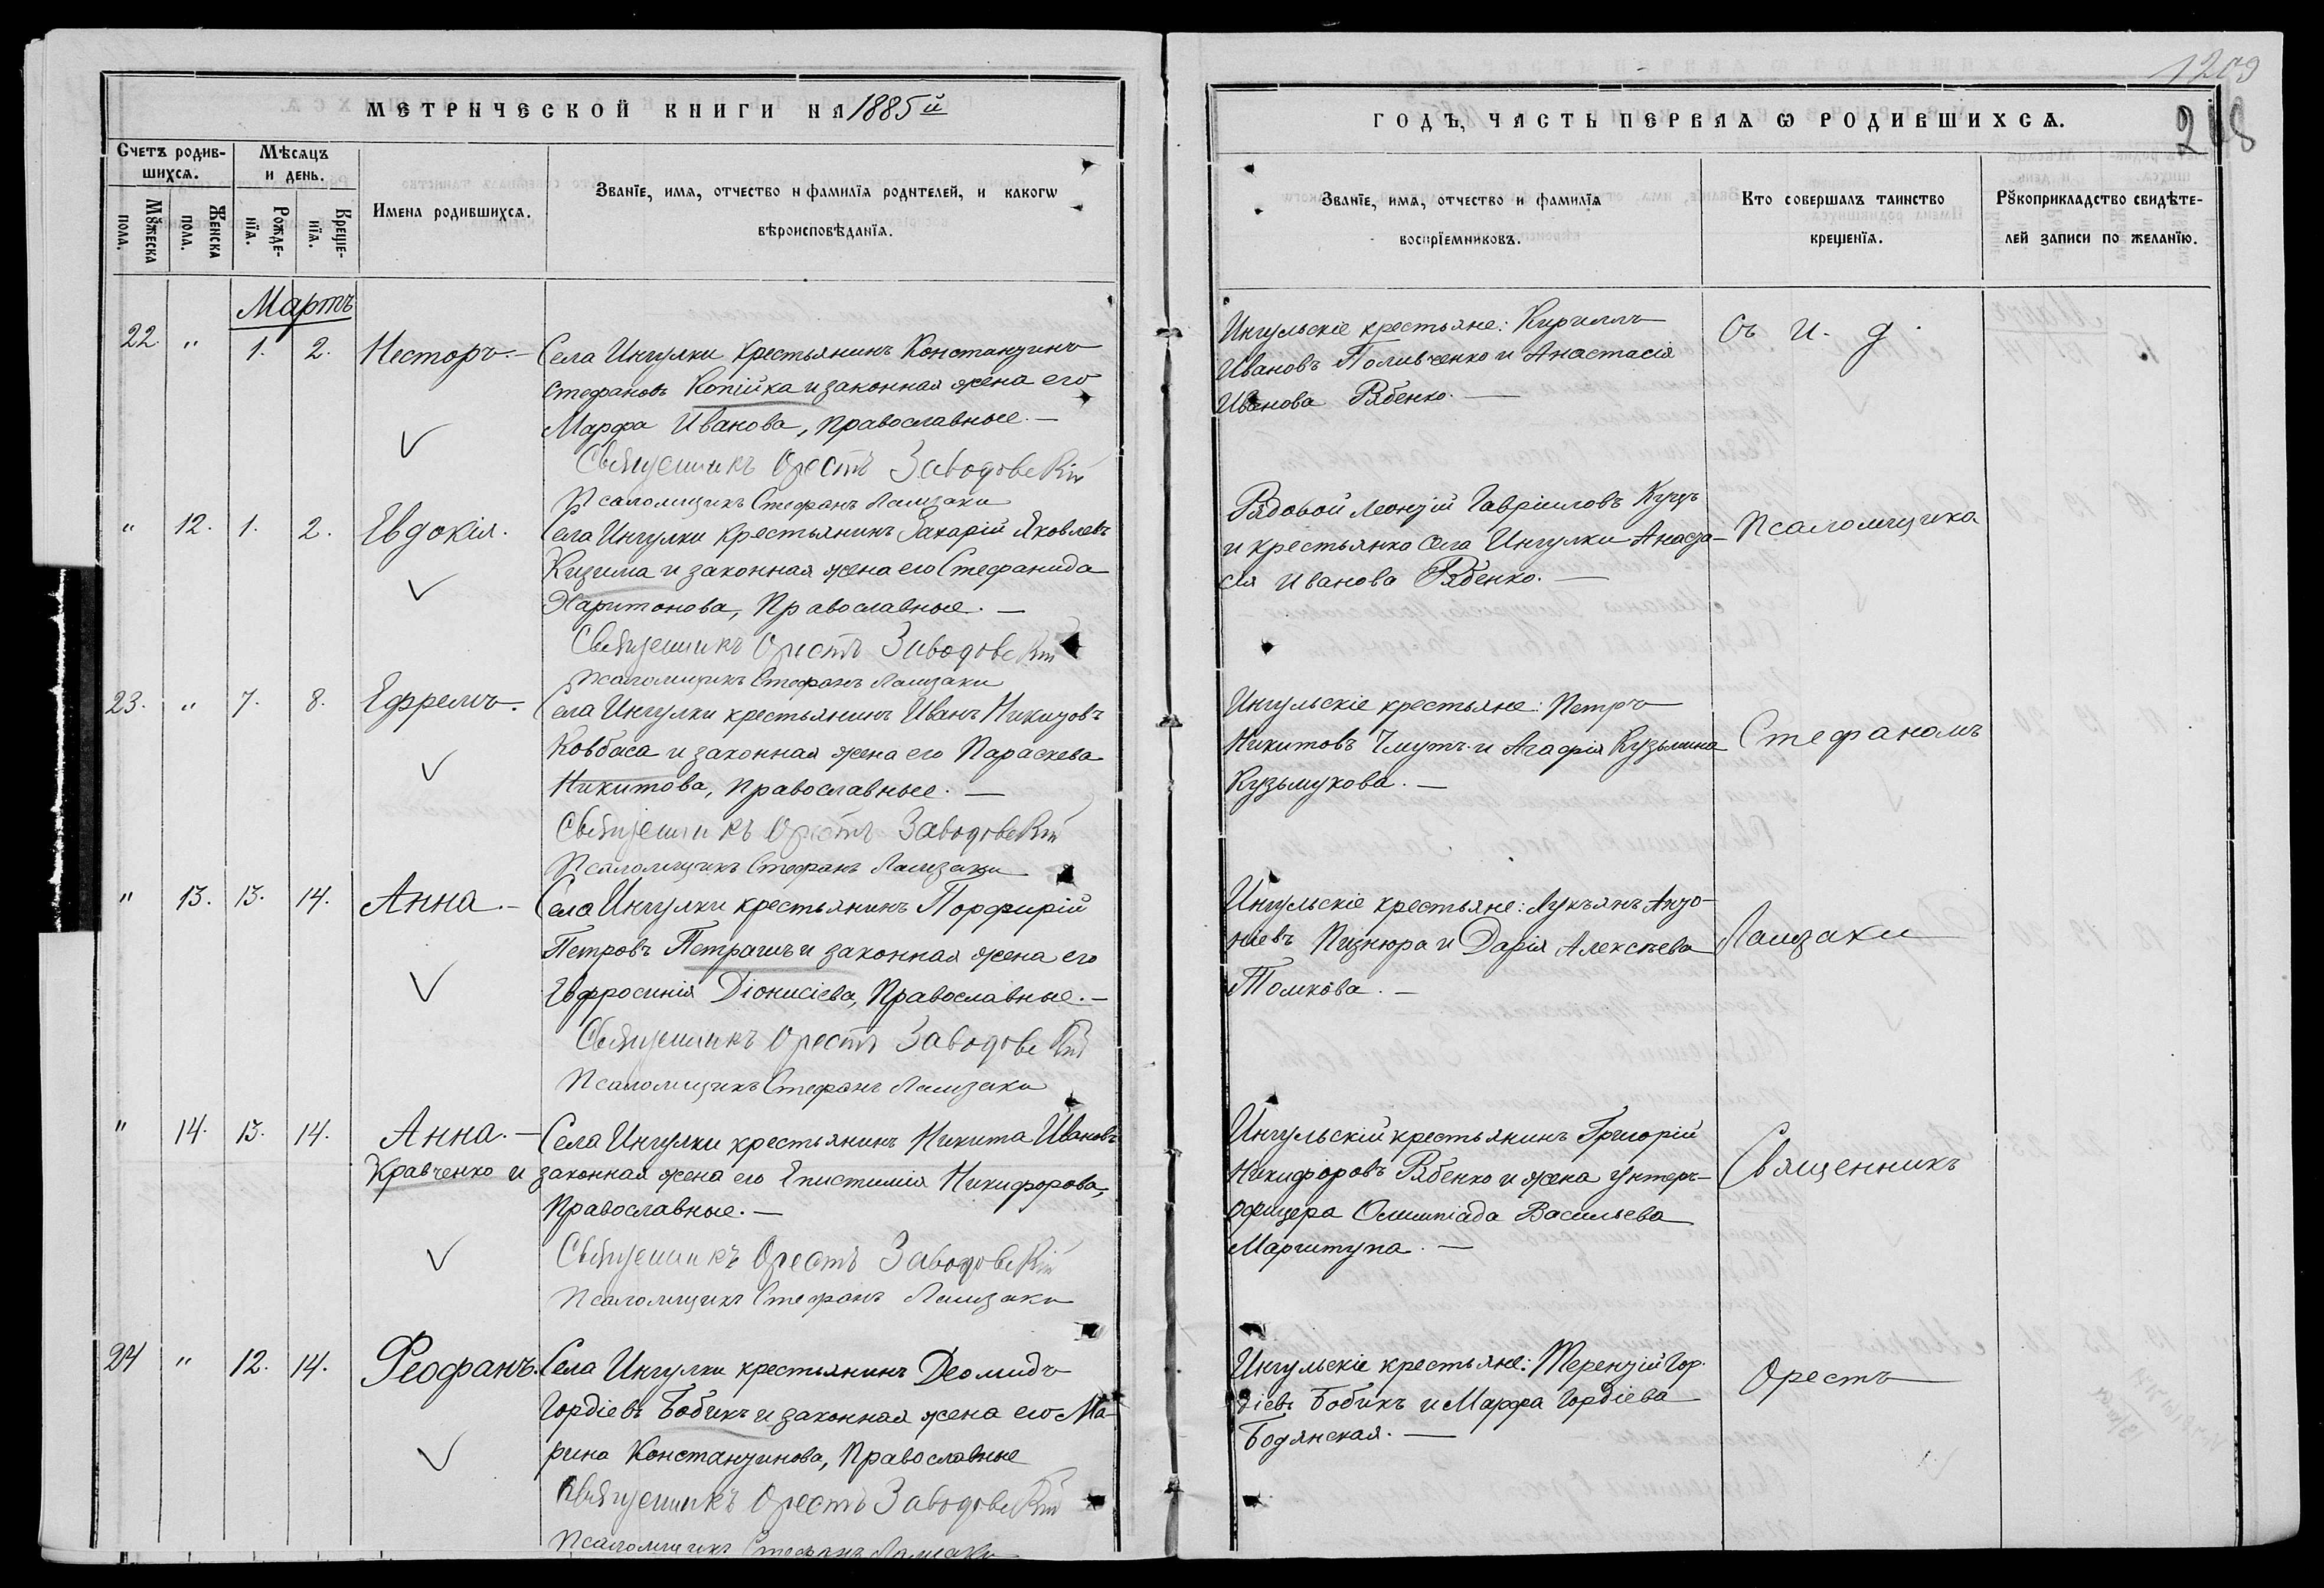 МЕТРИЧЕСКОЙ КНИГИ НА 1885й
Счетъ родив-
шихсѧ.
Мѣсѧцъ
и день.
Мꙋжеска
пола.
Женска
пола.
Рожде-
нїѧ.
Креще-
нїѧ.
Имена родившихсѧ.
Званїе, имѧ, отчество и фамилїѧ родителей, и какогѡ
вѣроисповѣданїѧ.
Мартъ
22. " 1. 2. Несторъ.— Села Ингулки крестьянинъ Константинъ
Стефановъ Копійка и законная жена его
Марфа Иванова, православные.—
Священникъ Орестъ Заводовскій
Псаломщикъ Стефанъ
" 12. 1. 2. Евдокія. Села Ингулки крестьянинъ Захарій Яковлевъ
Кизима и законная жена его Стефанида
Харитонова, Православные.—
Священникъ Орестъ Заводовскій
Псаломщикъ Стефанъ
23. " 7. 8. Ефремъ. Села Ингулки крестьянинъ Иванъ Никитовъ
Ковбаса и законная жена его Параскева
Никитова, православные.—
Священникъ Орестъ Заводовскій
Псаломщикъ Стефанъ
" 13. 13. 14. Анна.— Села Ингулки крестьянинъ Порфирій
Петровъ Петрашъ и законная жена его
Евфросинія Діонисіева, Православные.—
Священникъ Орестъ Заводовскій
Псаломщикъ Стефанъ
" 14. 13. 14. Анна.— Села Ингулки крестьянинъ Никита Ивановъ
Кравченко и законная жена его Епистимія Никифорова,
Православные.—
Священникъ Орестъ Заводовскій
Псаломщикъ Стефанъ
24 " 12. 14. Феофанъ. Села Ингулки крестьянинъ Деомидъ
Гордіевъ Бобикъ и законная жена его Ма-
рина Константинова, Православные
Священникъ Орестъ Заводовскій
Псаломщикъ Стефанъ
1209
208
ГОДЪ, ЧАСТЬ ПЕРВАѦ Ѡ РОДИВШИХСѦ.
Званїе, имѧ, отчество и фамилїѧ
воспрїемниковъ.
Кто совершалъ таинство
крещенїѧ.
Рꙋкоприкладство свидѣте-
лей записи по желанїю.
Ингульскіе крестьяне: Кириллъ
Ивановъ Поливченко и Анастасія
Иванова Рябенко.—
Рядовой Леонтій Гавріиловъ Куцъ
и крестьянка села Ингулки Анаста-
сія Иванова Рябенко.—
Ингульскіе крестьяне: Петръ
Никитовъ Чмутъ и Агафія Кузьмина
Кузьмукова.—
Ингульскіе крестьяне: Лукьянъ Анто-
ніевъ Пизнюра и Дарія Алексѣева
Томкова.—
Ингульскій крестьянинъ Григорій
Никифоровъ Рябенко и жена унтеръ-
офицера Олимпіада Васильева
Маргитупа.—
Ингульскіе крестьяне: Терентій Гор-
діевъ Бобикъ и Марфа Гордіева
Бодянская.—
Съ и. д.
Псаломщика
Стефаномъ
Священникъ
Орестъ